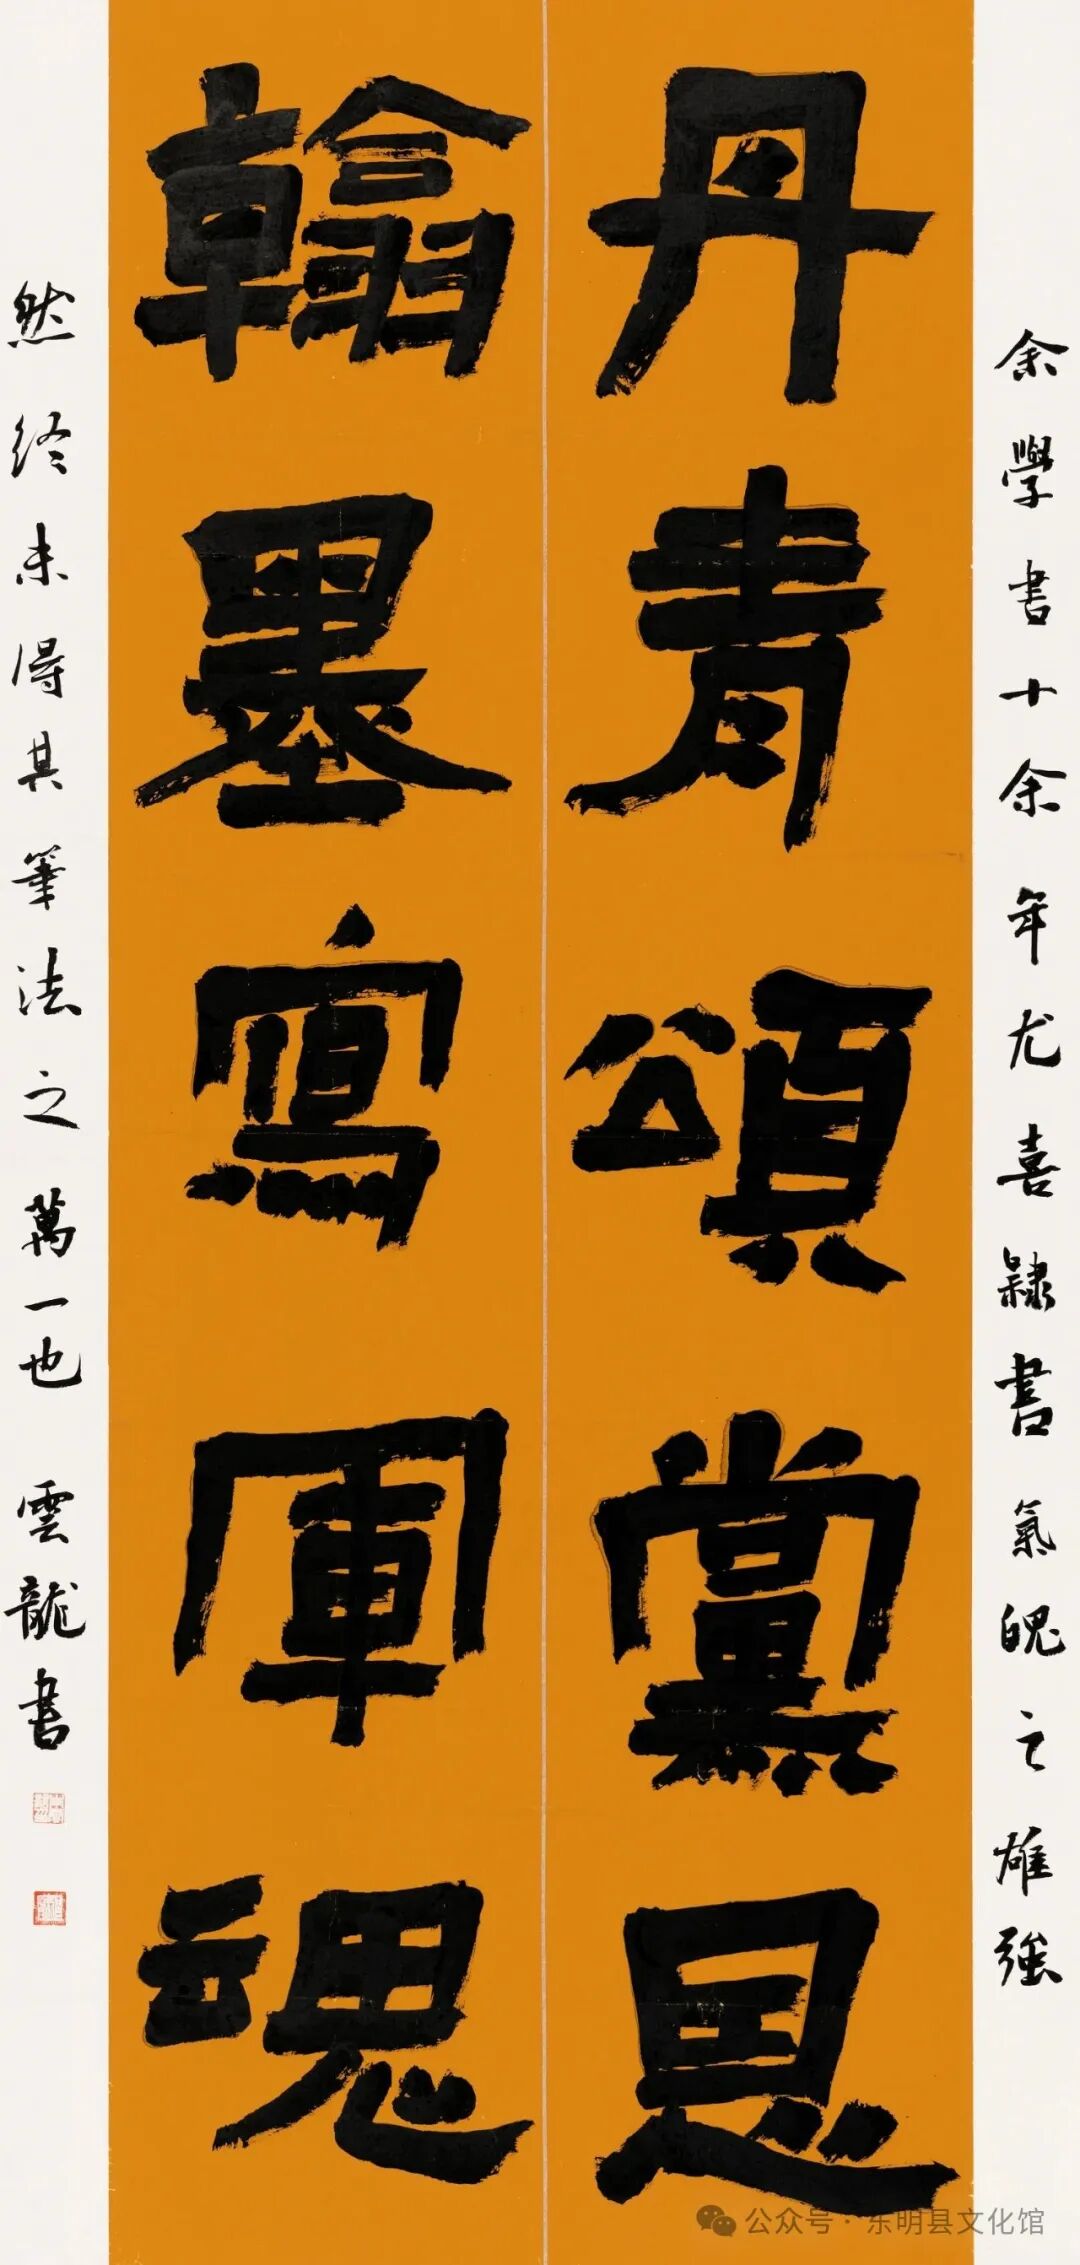 丹青頌黨恩
翰墨寫軍魂
余學書十余年尤喜隸書氣魄之雄強
然终未得其筆法之萬一也 雲龍书
公众号·东明县文化馆